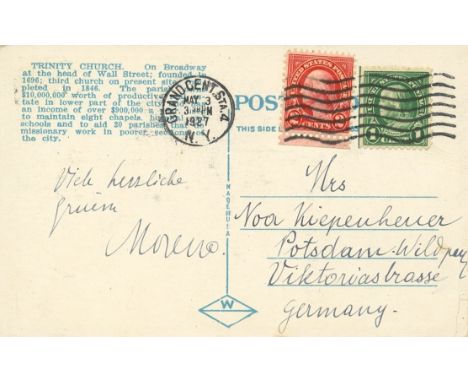 TRINITY CHURCH. On Broadway
at the head of Wall Street; founded in
1696; third church on present site
pleted in 1846. The parish
$10,000,000 worth of productive
tate in lower part of the city
an income of over $900,000 a
to maintain eight chapels,
schools and to aid 20 parishes
missionary work in poorer sections of
the city.
GRAND CENT. STA.
MAY 3
1927
N.Y.
POST
THIS SIDE
UNITED STATES POSTAGE
2 CENTS 2
1 1
Viele herzliche
Grüsse
Moreno.
Mrs
Noa Kiepenheuer
Potsdam-Wildpark
Viktoriastrasse
Germany.
W